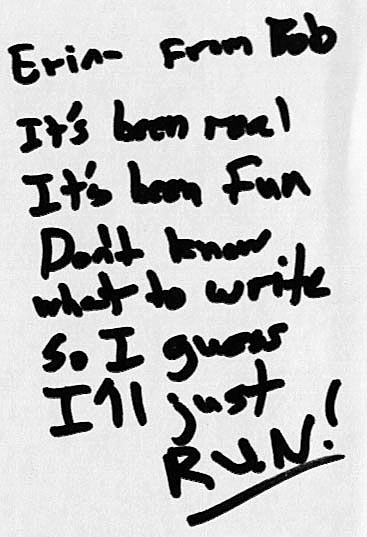 Erin- From Bob
It's been real
It's been Fun
Don't know
what to write
so I guess
I'll just
RUN!